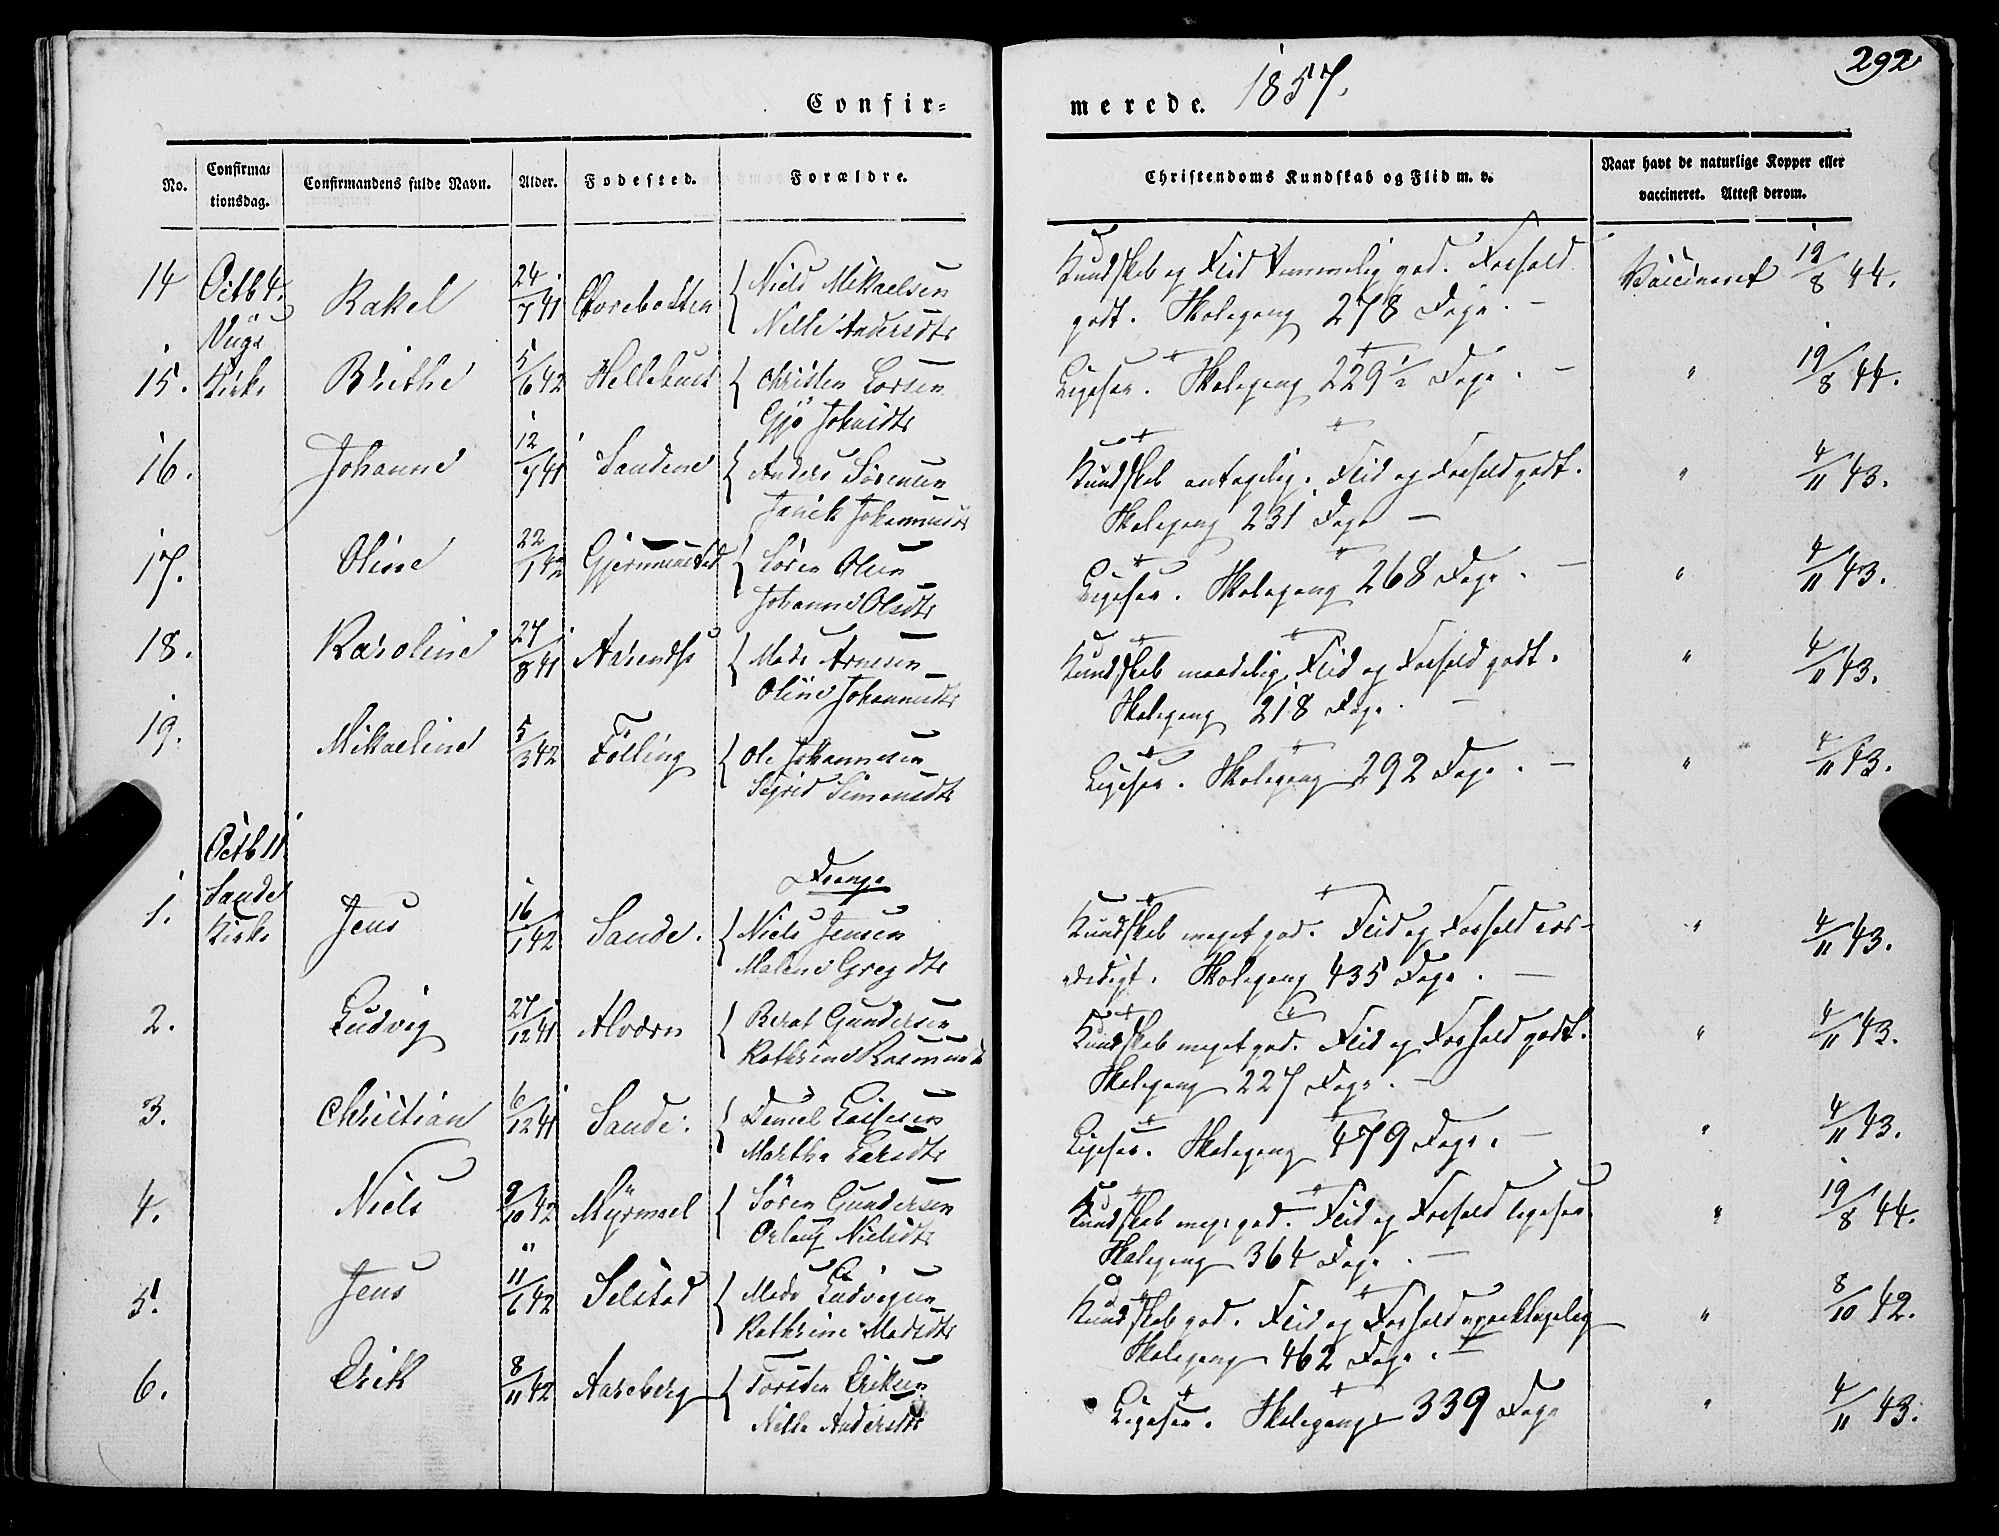 292
Confir-
merede. 1857.
No. Confirmationsdag. Confirmandens fulde Navn. Alder. Fodested. Forældre.
Christendoms Kundskab og Flid m. v. Naar havt de naturlige Kopper eller vaccineret. Attest derom.
14 Octb 4. Rakel 24/7 41 Niels Mikaelsen
Kundskab og Flid temmelig god. Forhold Vaccineret 19/8 44.
Nille Andersdtr
godt. Skolegang 278 Dage. –
15. Kirke Brithe 5/6 42 Christen Larsen
Ligesaa. Skolegang 229 1/2 Dage. – " 19/8 44.
16. Johanne 12/7 41 Sandene Anders Sørensen
Kundskab antagelig. Flid og Forhold godt. " 4/11 43.
Skolegang 231 Dage –
17. Oline 22/1 42 Sören Olsen
Ligesaa. Skolegang 268 Dage. – " 4/11 43.
Johanne Olsdtr
18. Karoline 27/8 41 Mads Arnesen
Kundskab maadelig, Flid og Forhold godt. " 4/11 43.
Oline Johannesdtr
Skolegang 218 Dage. –
19. Mikaeline 5/3 42 Fölling Ole Johannesen
Ligesaa. Skolegang 292 Dage. – " 4/11 43.
Sigrid Simonsdtr
Octb 11
Sande
Kirke
Drenge
1. Jens 16/1 42 Sande. Niels Jensen
Kundskab meget god. Flid og Forhold vær-
" 4/11 43.
Malene Gregdtr
digt. Skolegang 435 Dage. –
2. Ludvig 27/12 41 Alværn Berat Gundersen
Kundskab meget god. Flid og Forhold godt. " 4/11 43.
Kathrine
Skolegang 227 Dage. –
3. Christian 6/12 41 Sande. Daniel
Ligesaa. Skolegang 479 Dage. – " 4/11 43.
Martha Larsdtr
4. Niels 9/10 42 Myrmæl Sören Gundersen
Kundskab meg: god. Flid og Forhold ligesaa. " 19/8 44.
Nielsdtr
Skolegang 364 Dage. –
5. Jens 11/6 42 Selstad Mads Ludvigsen
Kundskab god. Flid og Forhold upaaklagelig " 8/10 42.
Kathrine Madsdtr
Skolegang 462 Dage. –
6. Erik 8/11 42 Aareberg Torsten Eriksen
Ligesaa. Skolegang 339 Dage " 4/11 43.
Nille Andersdtr